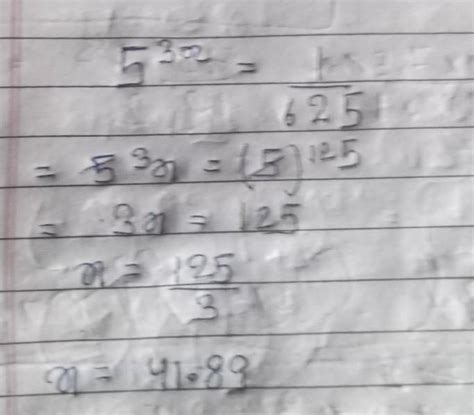 5^3x = 1/625
= 5^3x = (5)^125
= 3x = 125
x = 125/3
x = 41.89